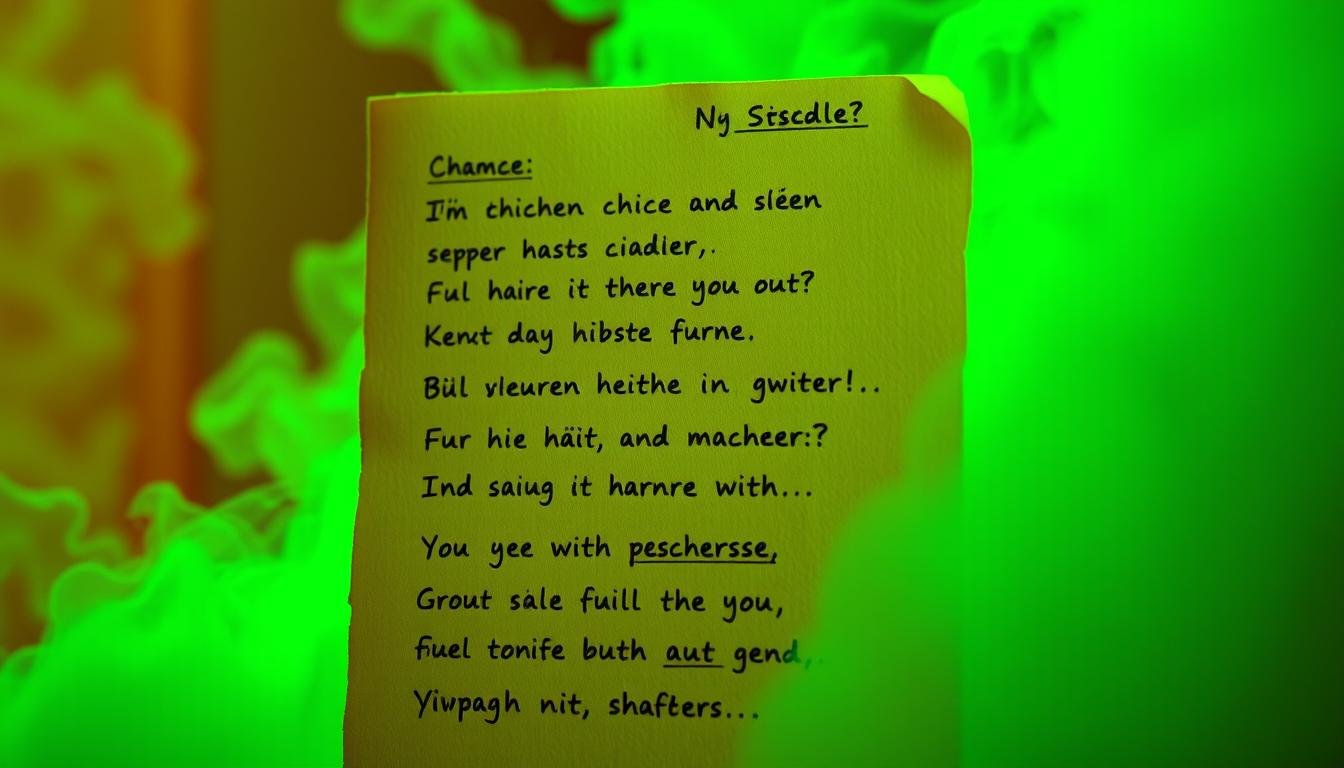 Ny Stscdle?
Chamce:
I'm thichen chice and sléen
sepper hasts ciadler,.
Ful haire it there you out?
Kenut day hibste furne.
Bül vleuren heithe in gwiter!..
Fur hie häit, and macheer:?
Ind saiug it harnre with...
You yee with peschersse,
Grout sale fuill the you,
fuel tonife buth aut gend,.
Yiwpagh nit, shafters...